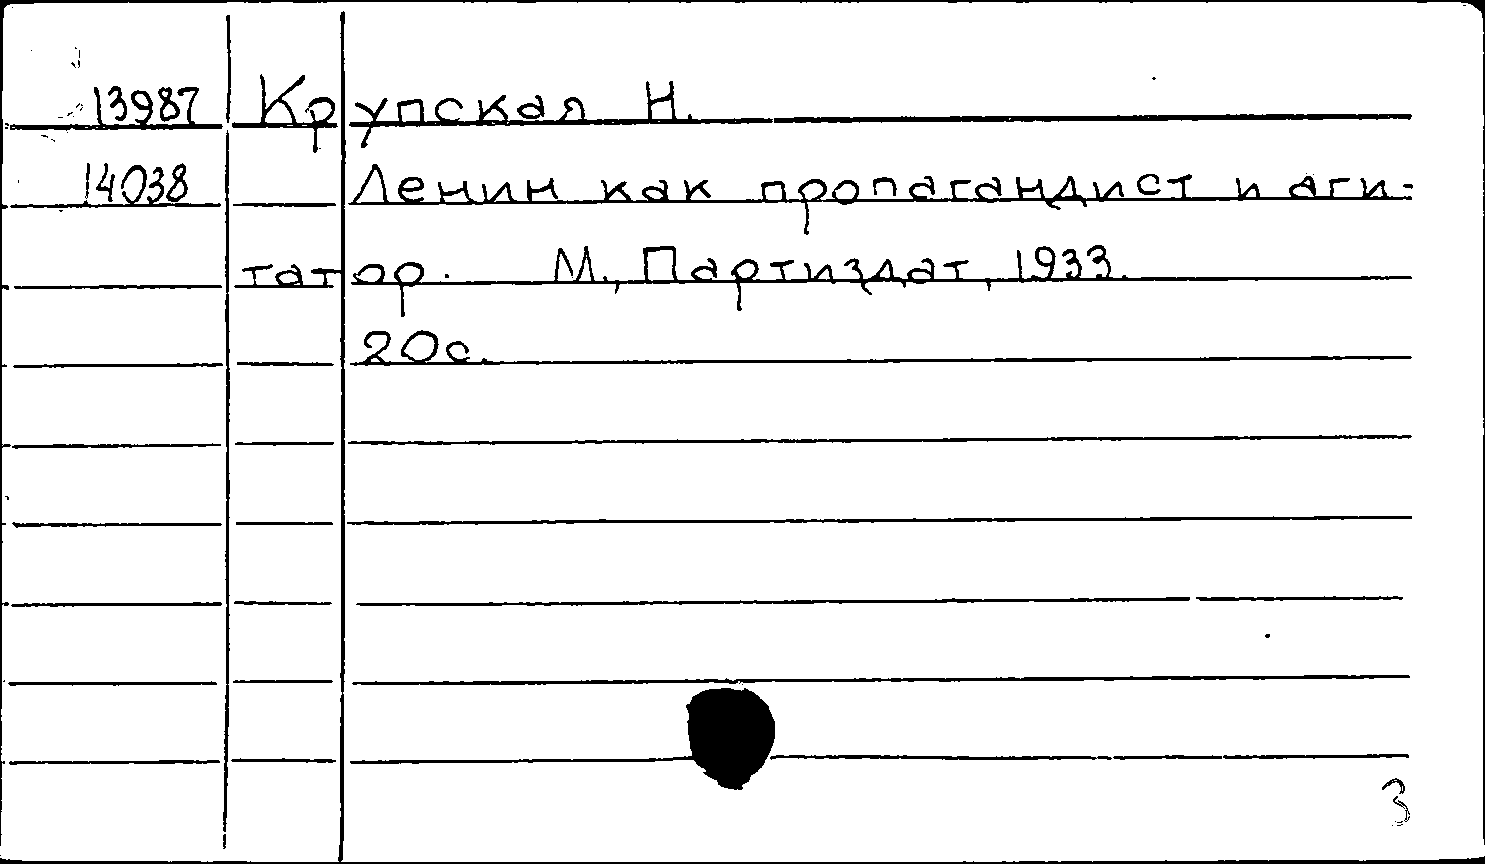 13987 Крупская Н.
14038 Ленин как пропагандист и аги-
татор. М., Партиздат, 1933.
20с.
3